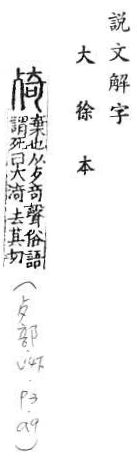 說文解字
大徐本
㱦
棄也从歺奇聲俗語
謂死曰大㱦去其切
(歺部.V4下.P3.a9)